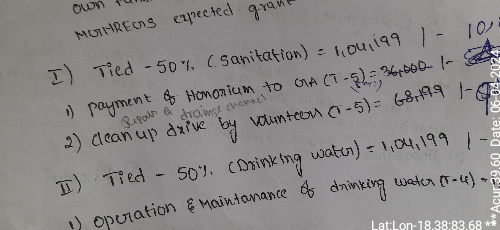 own
MGNREGS expected grant
I) Tied - 50% (Sanitation) = 1,04,199 /-
1) Payment of Honorium to GVA (T-5) = 36,000 /-
Repair & drainage channel
2) clean up drive by volunteers (T-5) = 68,199 /-
II) Tied - 50% (Drinking water) = 1,04,199 /-
1) Operation & Maintanance of drinking water (T-4) =
Lat:Lon-18.38:83.68
**Acur:39.60 Date:
2024